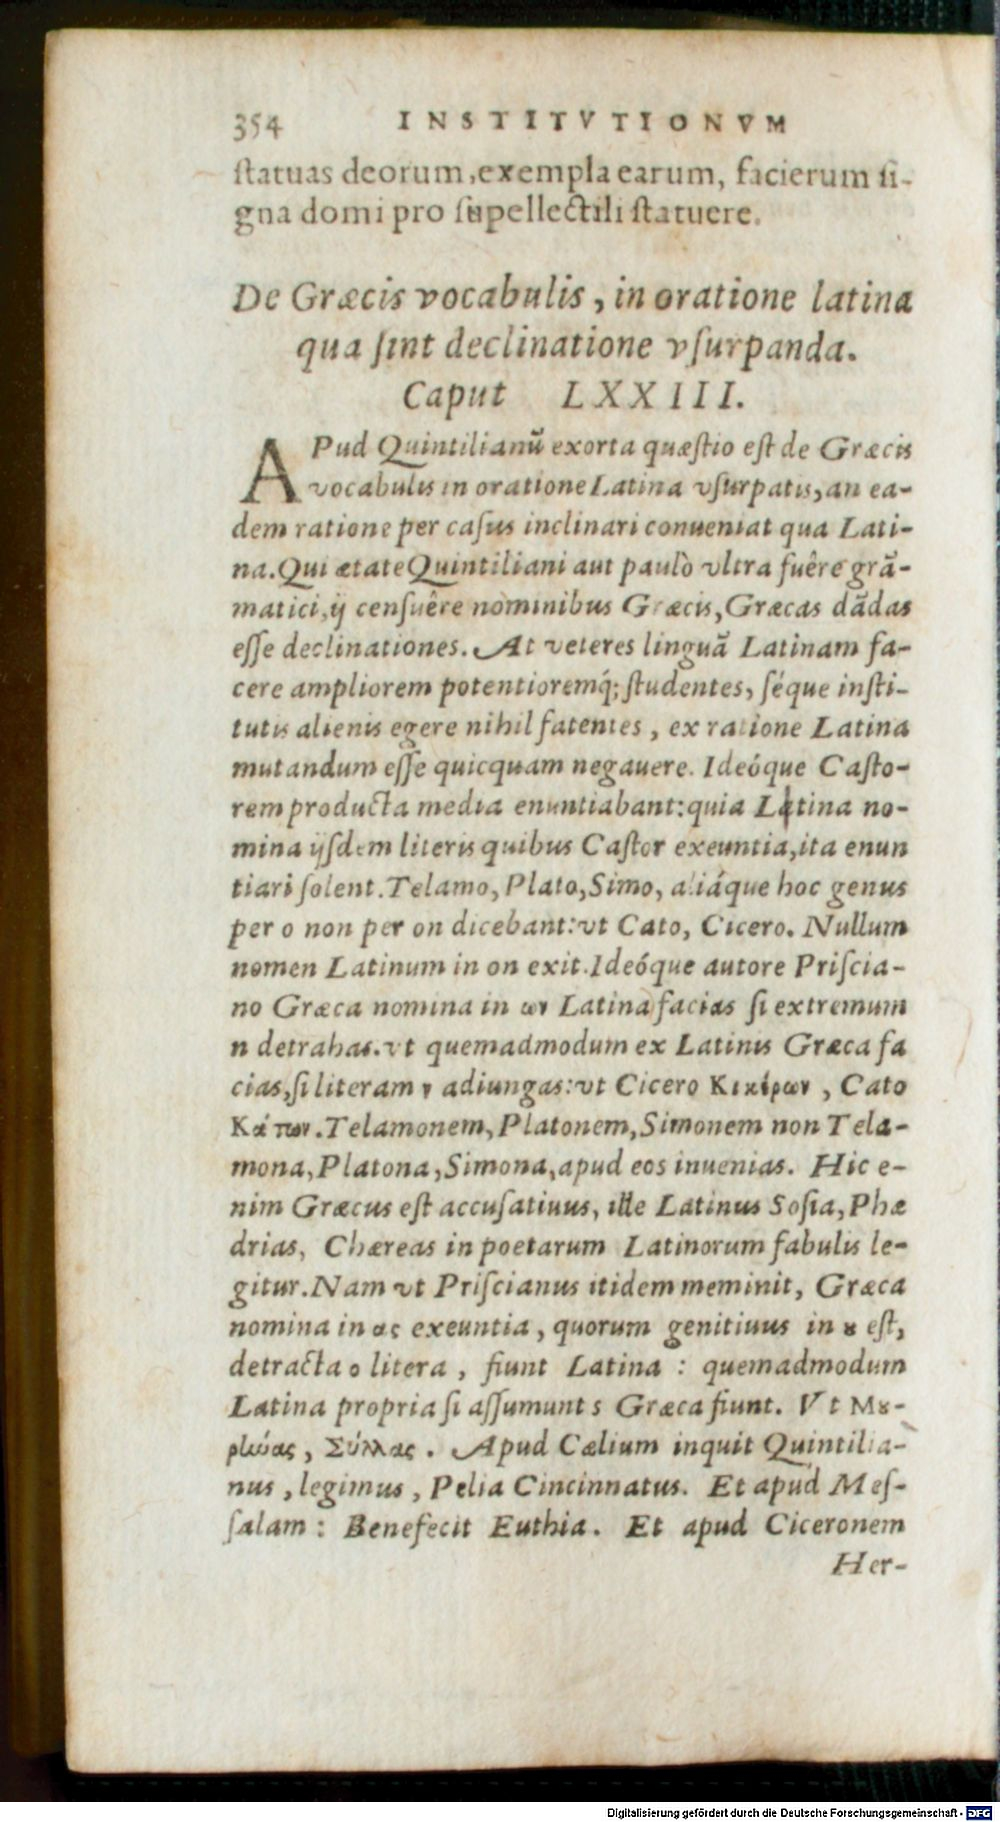 354 INSTITVTIONVM
ſtatuas deorum, exempla earum, facierum ſi-
gna domi pro ſupellectili ſtatuere.
De Græcis vocabulis, in oratione latina
qua ſint declinatione vſurpanda.
Caput LXXIII.
APud Quintilianũ exorta quæſtio eſt de Græcis
vocabulis in oratione Latina vſurpatis, an ea-
dem ratione per caſus inclinari conueniat qua Lati-
na. Qui ætate Quintiliani aut paulò vltra fuêre grã-
matici, ij cenſuêre nominibus Græcis, Græcas dãdas
eſſe declinationes. At veteres linguã Latinam fa-
cere ampliorem potentioremq́; ſtudentes, ſéque inſti-
tutis alienis egere nihil fatentes, ex ratione Latina
mutandum eſſe quicquam negauere. Ideóque Caſto-
rem producta media enuntiabant: quia Latina no-
mina ijſdem literis quibus Caſtor exeuntia, ita enun
tiari ſolent. Telamo, Plato, Simo, aliáque hoc genus
per o non per on dicebant: vt Cato, Cicero. Nullum
nomen Latinum in on exit. Ideóque autore Priſcia-
no Græca nomina in ων Latina facias ſi extremum
n detrahas. vt quemadmodum ex Latinis Græca fa
cias, ſi literam ν adiungas: vt Cicero Κικέρων, Cato
Κάτων. Telamonem, Platonem, Simonem non Tela-
mona, Platona, Simona, apud eos inuenias. Hic e-
nim Græcus eſt accuſatiuus, ille Latinus Soſia, Phæ
drias, Chæreas in poetarum Latinorum fabulis le-
gitur. Nam vt Priſcianus itidem meminit, Græca
nomina in ας exeuntia, quorum genitiuus in ȣ eſt,
detracta o litera, fiunt Latina: quemadmodum
Latina propria ſi aſſumunt s Græca fiunt. Vt Μȣ-
ρλώας, Σύλλας. Apud Cælium inquit Quintilia-
nus, legimus, Pelia Cincinnatus. Et apud Meſ-
ſalam: Benefecit Euthia. Et apud Ciceronem
Her-
Digitalisierung gefördert durch die Deutsche Forschungsgemeinschaft - DFG